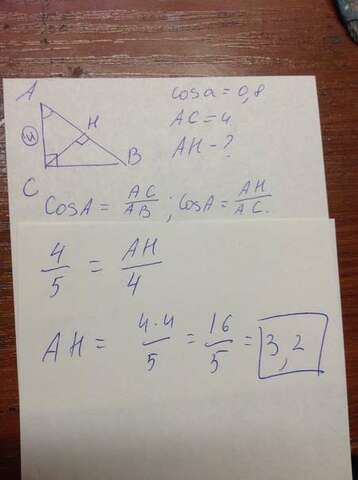 A
cosa = 0,8
4
H
AC = 4
AH - ?
B
C
cosA = AC/AB ; cosA = AH/AC.
4/5 = AH/4
AH = 4·4/5 = 16/5 = 3,2